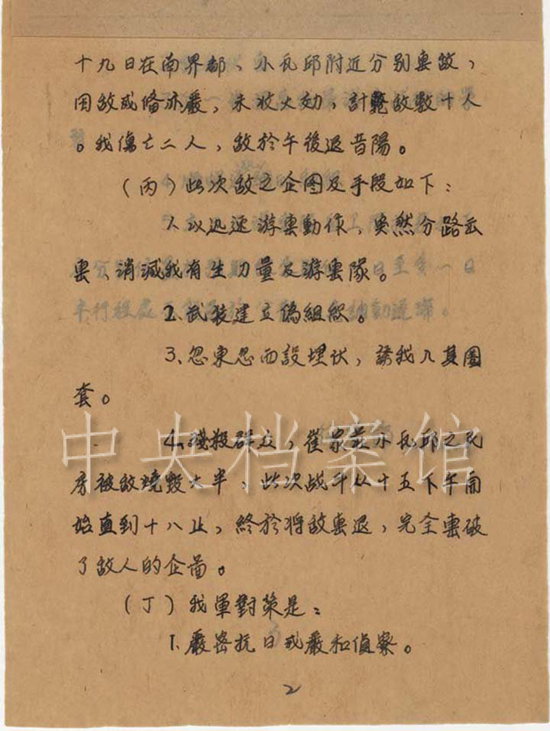 十九日在南界都、永瓦邱附近分别击敌,
因敌戒备亦严,未收大効,計斃敌數十人
。我傷亡二人,敌於午後退昔陽。
(丙)此次敌之企图及手段如下:
1.以迅速游击動作,突然分路出
击、消滅我有生力量及游击隊。
2.武裝建立偽組织。
3.忽東忽西設埋伏,誘我入其圈
套。
4.残殺群众,崔家 永瓦邱之民
房被敌燒毀大半,此次战斗从十五下午開
始直到十八止,終於将敌击退,完全击破
了敌人的企啚。
(丁)我軍對策是:
1.嚴密抗日戒嚴和偵察。
2
中央档案馆